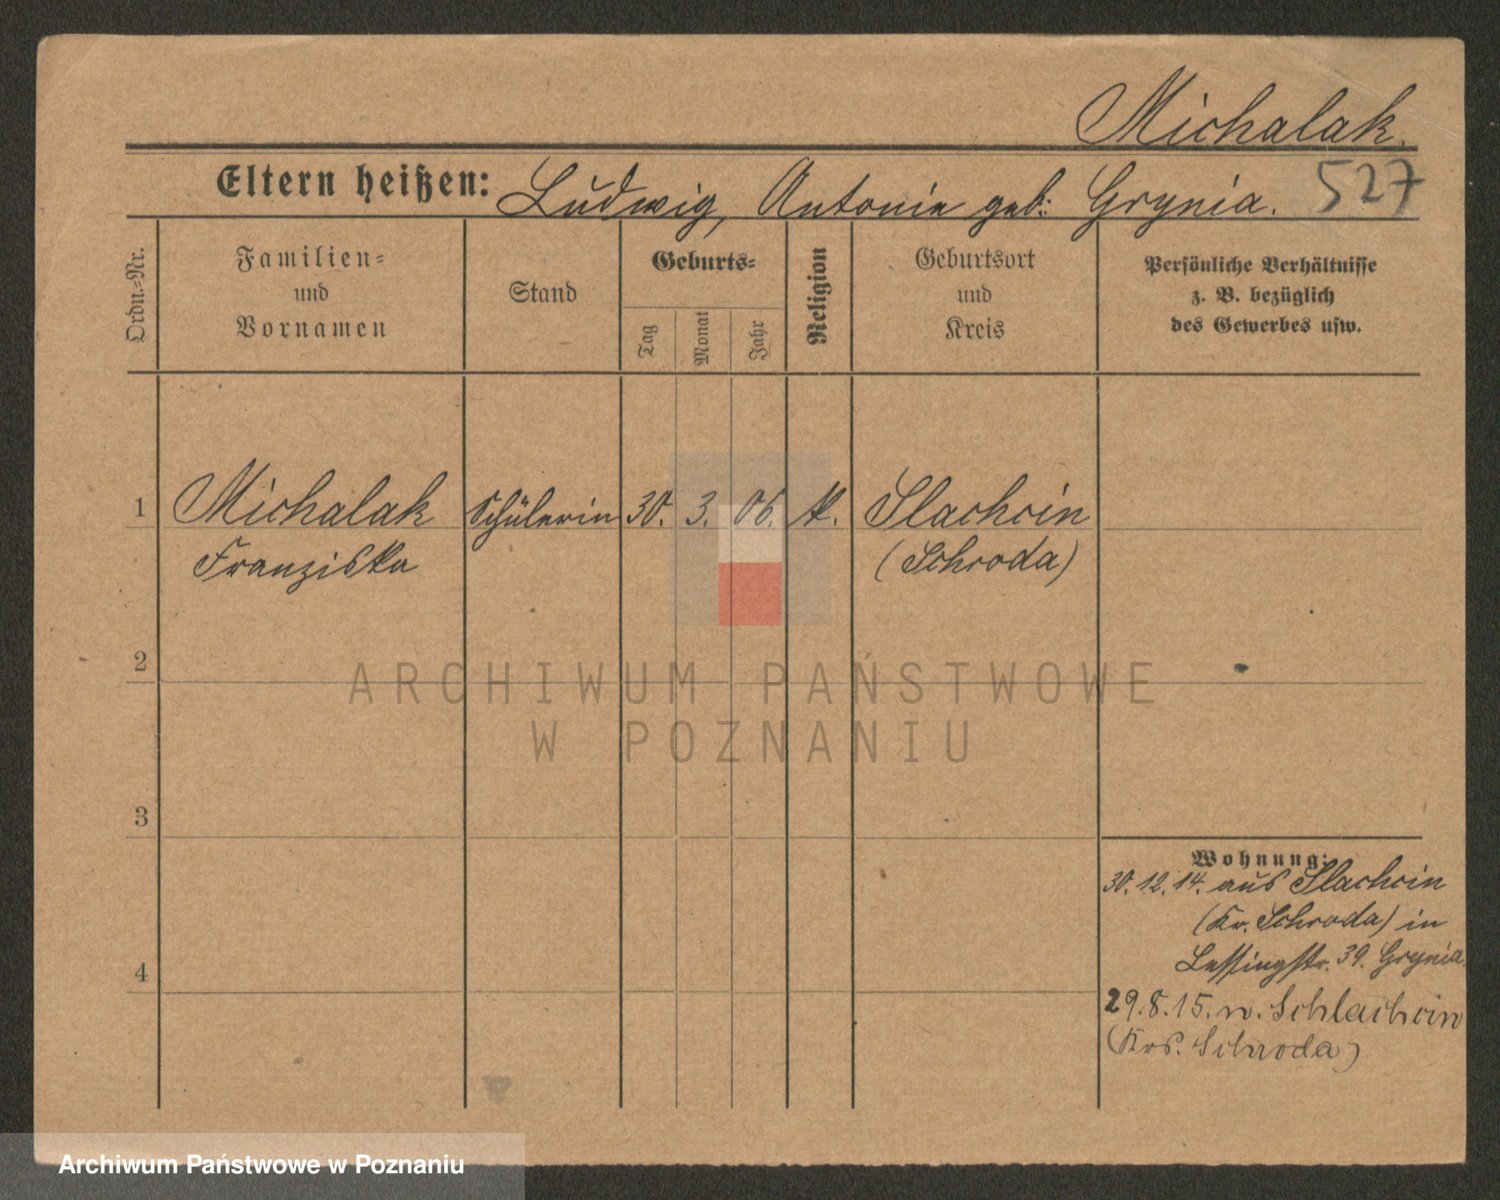 Michalak.
Eltern heißen: Ludwig, Antonie geb: Grynia. 527
Ordn.-Nr.
Familien-
und
Vornamen
Stand
Geburts-
Tag
Monat
Jahr
Religion
Geburtsort
und
Kreis
Persönliche Verhältnisse
z. B. bezüglich
des Gewerbes usw.
1 Michalak Schülerin 30. 3. 06. k. Slachcin
Franziska (Schroda)
2
ARCHIWUM PAŃSTWOWE
W POZNANIU
3
Wohnung:
30.12.14. aus Slachcin
(Kr. Schroda) in
Lessingstr. 39. Grynia.
4
29.8.15. n. Schlachcin
(Krs. Schroda)
Archiwum Państwowe w Poznaniu